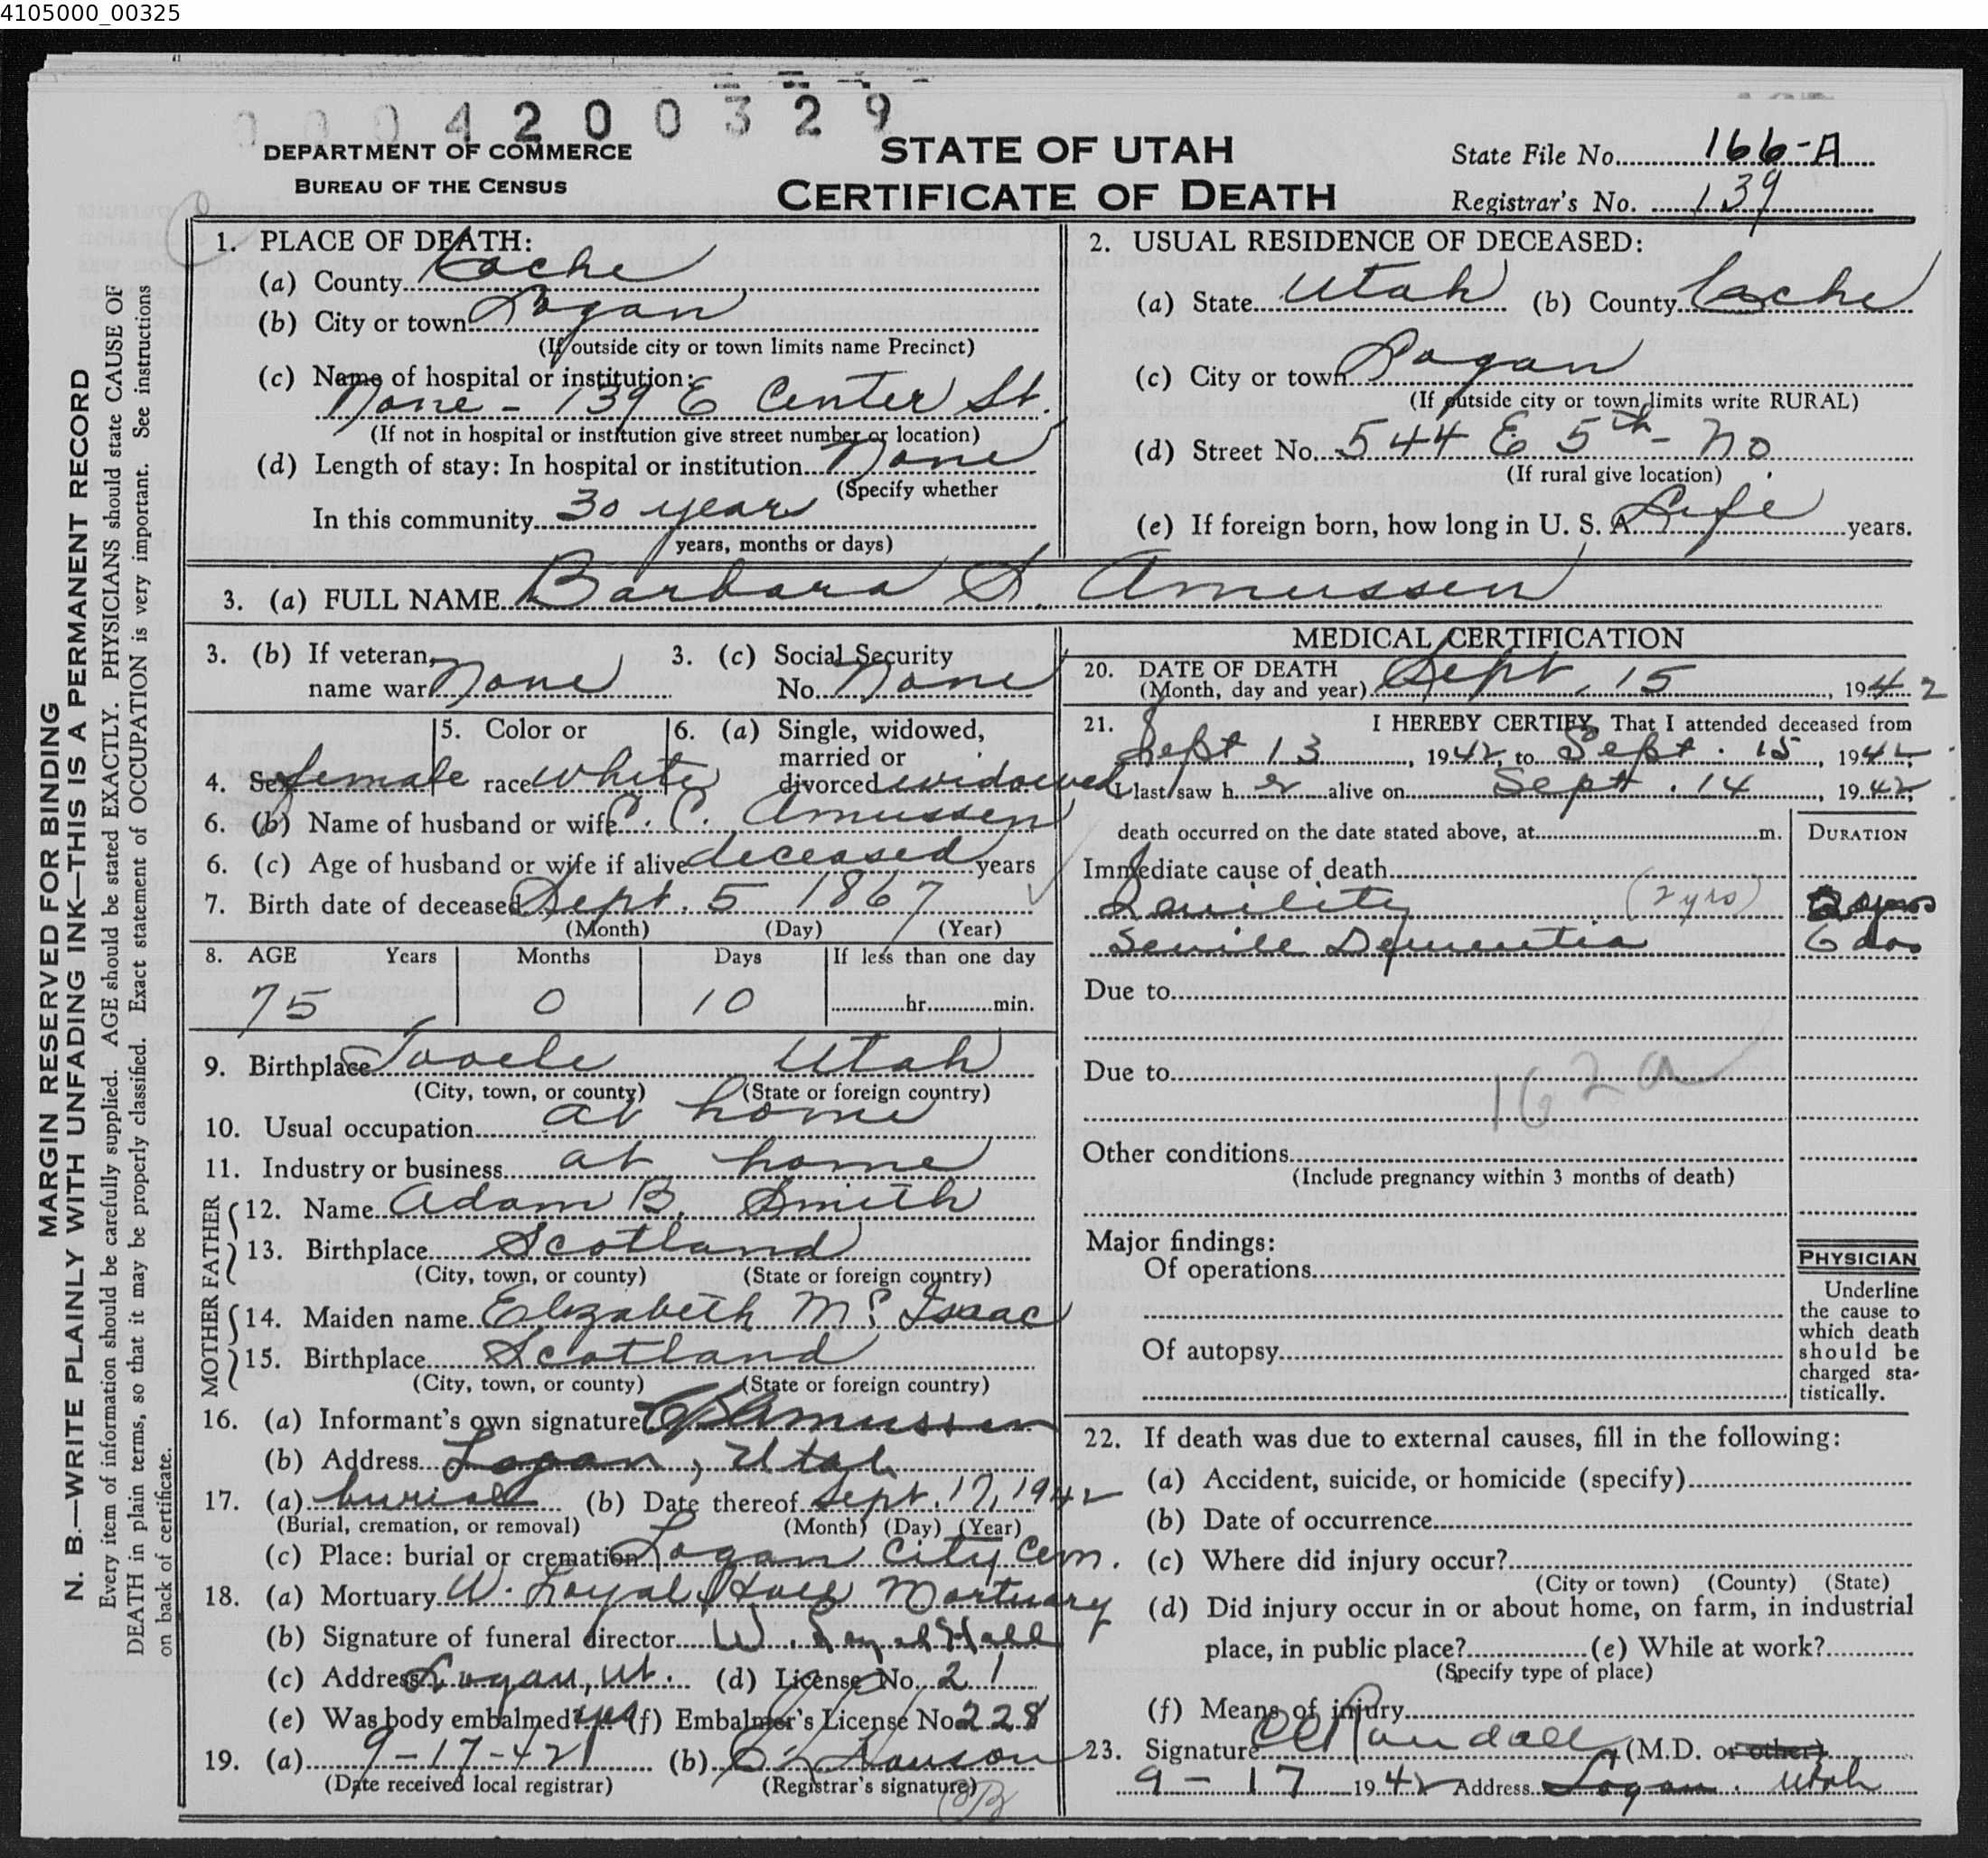 4105000_00325
0004200329
DEPARTMENT OF COMMERCE
BUREAU OF THE CENSUS
STATE OF UTAH
CERTIFICATE OF DEATH
State File No. 166-A
Registrar's No. 139
MARGIN RESERVED FOR BINDING
N. B.—WRITE PLAINLY WITH UNFADING INK—THIS IS A PERMANENT RECORD
Every item of information should be carefully supplied. AGE should be stated EXACTLY. PHYSICIANS should state CAUSE OF
DEATH in plain terms, so that it may be properly classified. Exact statement of OCCUPATION is very important. See instructions
on back of certificate.
1. PLACE OF DEATH:
(a) County Cache
(b) City or town Logan
(If outside city or town limits name Precinct)
(c) Name of hospital or institution:
None - 139 E Center St.
(If not in hospital or institution give street number or location)
(d) Length of stay: In hospital or institution None
(Specify whether
In this community 30 years
years, months or days)
2. USUAL RESIDENCE OF DECEASED:
(a) State Utah (b) County Cache
(c) City or town Logan
(If outside city or town limits write RURAL)
(d) Street No. 544 E 5th - No.
(If rural give location)
(e) If foreign born, how long in U. S. A. Life years.
3. (a) FULL NAME Barbara S. Amussen
3. (b) If veteran, name war None
3. (c) Social Security No. None
4. Sex female
5. Color or race white
6. (a) Single, widowed, married or divorced widowed
6. (b) Name of husband or wife C. C. Amussen
6. (c) Age of husband or wife if alive deceased years
7. Birth date of deceased Sept. 5 1867
(Month) (Day) (Year)
8. AGE Years Months Days If less than one day
75 0 10 hr. min.
9. Birthplace Tooele Utah
(City, town, or county) (State or foreign country)
10. Usual occupation at home
11. Industry or business at home
FATHER
12. Name Adam B. Smith
13. Birthplace Scotland
(City, town, or county) (State or foreign country)
MOTHER
14. Maiden name Elizabeth Mc Isaac
15. Birthplace Scotland
(City, town, or county) (State or foreign country)
16. (a) Informant's own signature Amussen
(b) Address Logan, Utah
17. (a) burial (b) Date thereof Sept. 17, 1942
(Burial, cremation, or removal) (Month) (Day) (Year)
(c) Place: burial or cremation Logan City Cem.
18. (a) Mortuary W. Loyal Hall Mortuary
(b) Signature of funeral director W. Loyal Hall
(c) Address Logan, Ut. (d) License No. 21
(e) Was body embalmed? yes (f) Embalmer's License No. 228
19. (a) 9-17-42 (b)
(Date received local registrar) (Registrar's signature)
MEDICAL CERTIFICATION
20. DATE OF DEATH
(Month, day and year) Sept. 15, 1942
21. I HEREBY CERTIFY, That I attended deceased from
Sept 13, 1942, to Sept. 15, 1942;
I last saw h er alive on Sept. 14, 1942,
death occurred on the date stated above, at m.
DURATION
Immediate cause of death
Senility (2 yrs) 2 years
Senile Dementia 6 dos
Due to
Due to
162a
Other conditions
(Include pregnancy within 3 months of death)
Major findings:
Of operations
Of autopsy
PHYSICIAN
Underline
the cause to
which death
should be
charged sta-
tistically.
22. If death was due to external causes, fill in the following:
(a) Accident, suicide, or homicide (specify)
(b) Date of occurrence
(c) Where did injury occur?
(City or town) (County) (State)
(d) Did injury occur in or about home, on farm, in industrial
place, in public place? (e) While at work?
(Specify type of place)
(f) Means of injury
23. Signature Randall (M.D. or other)
9-17 1942 Address Logan. Utah